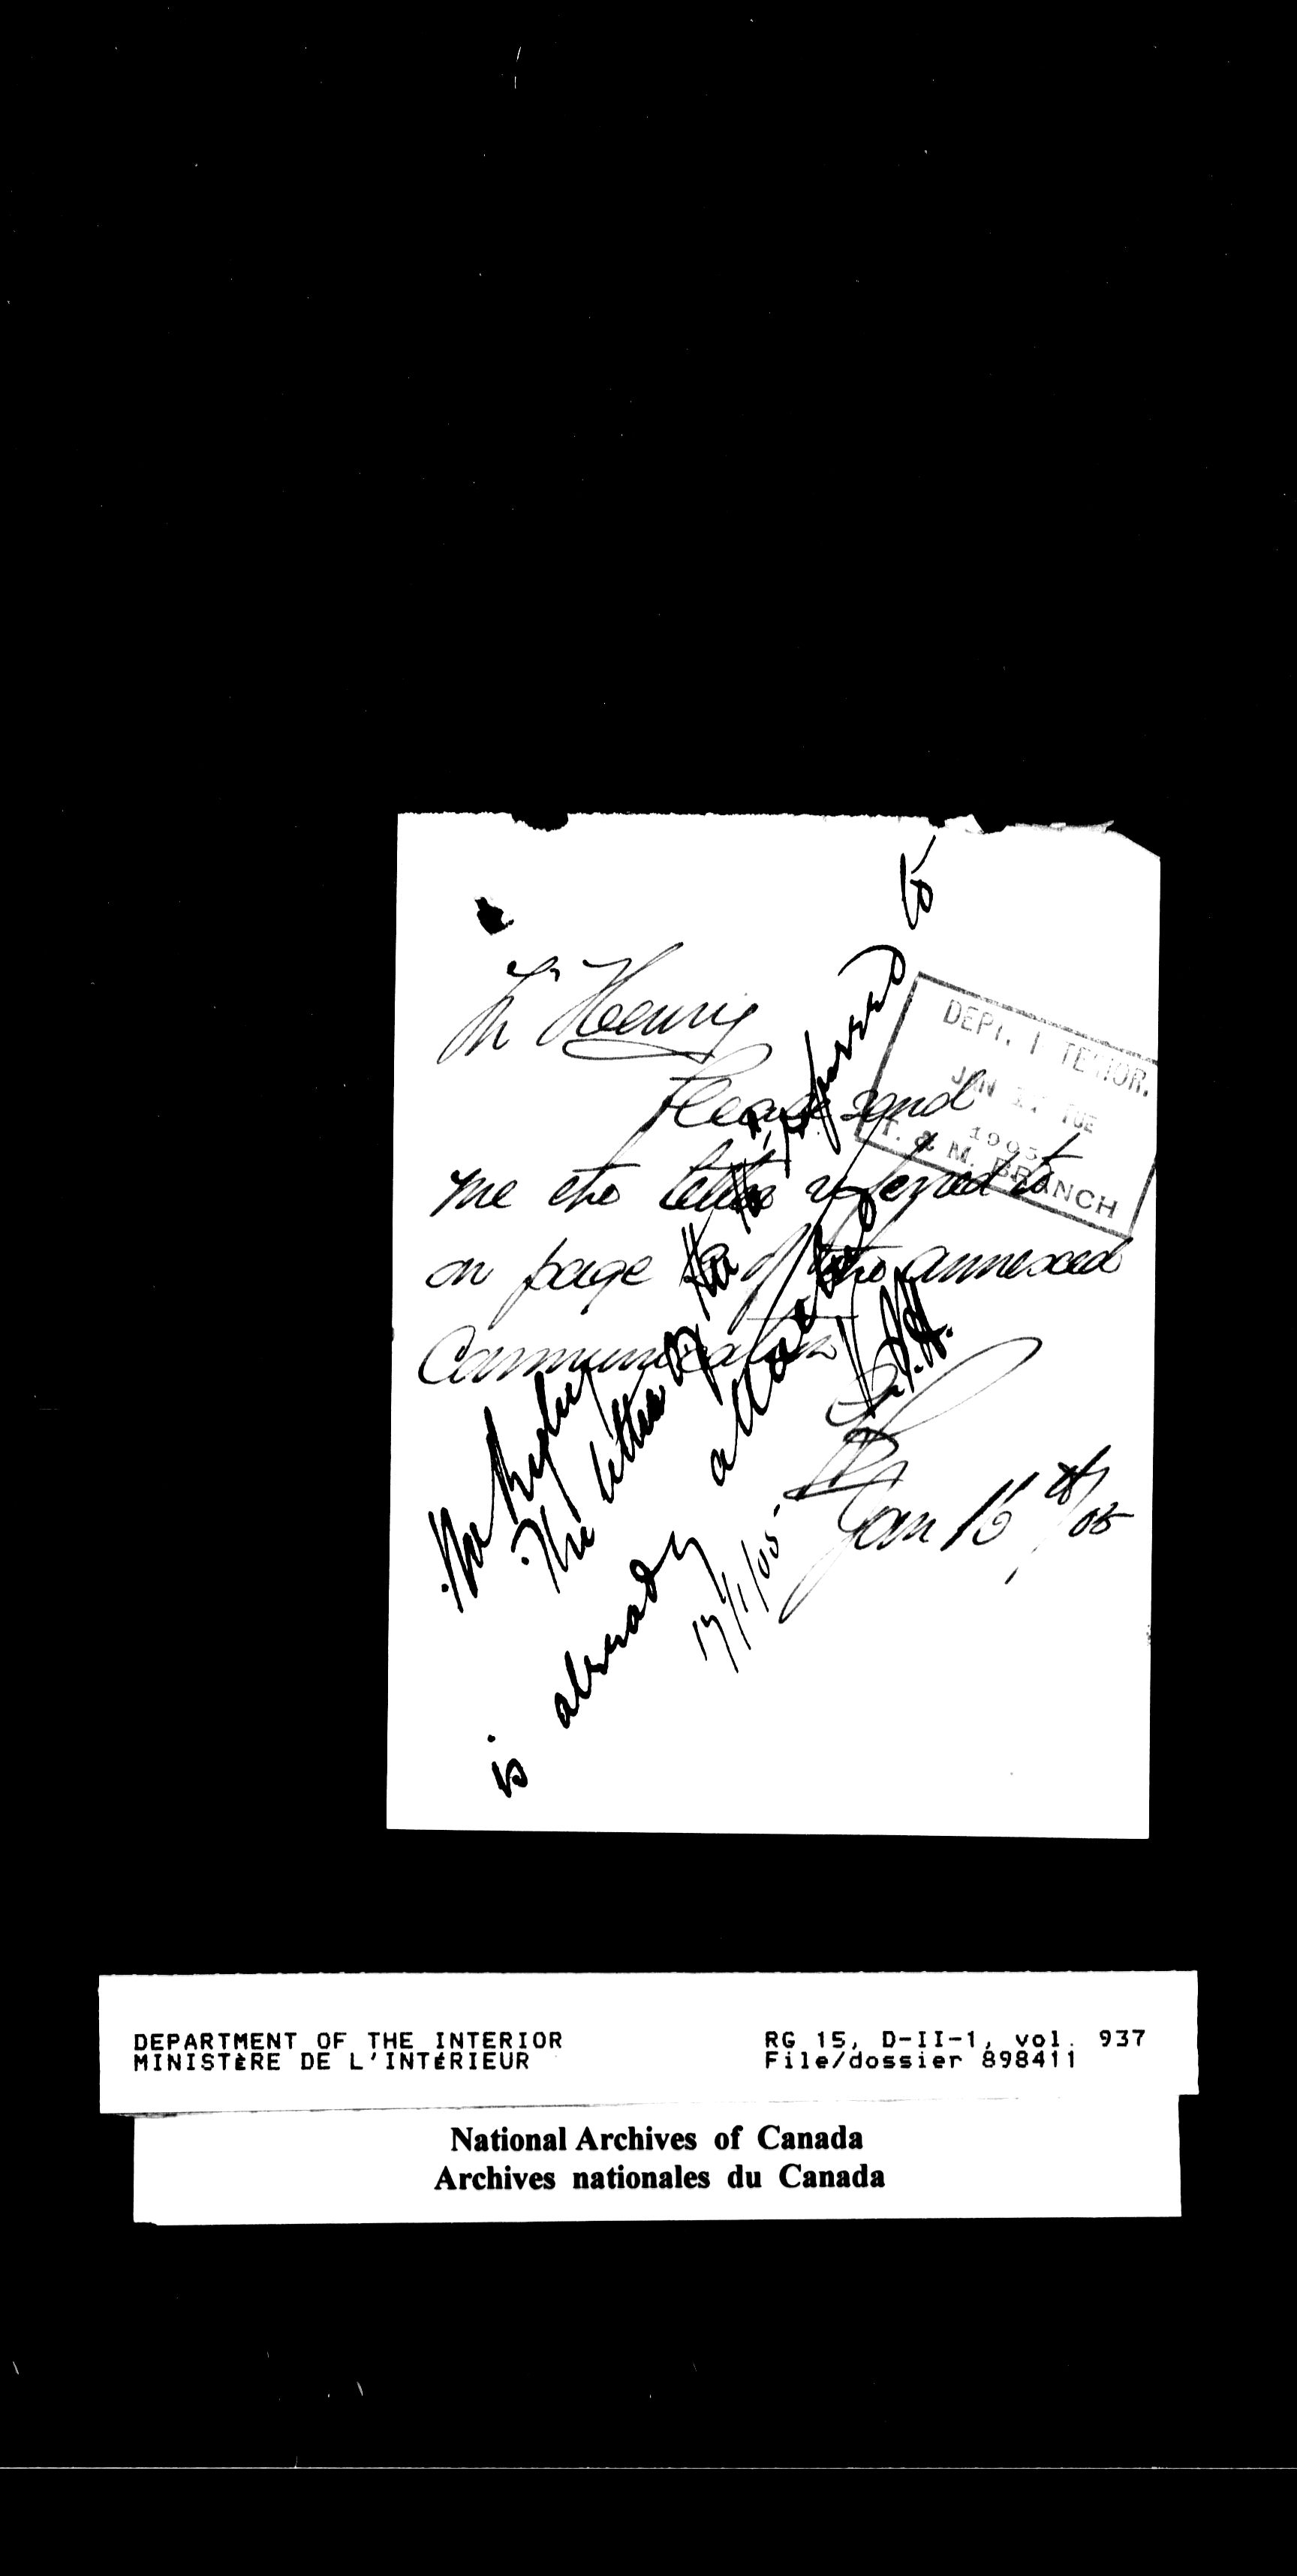 Mr Henry
Please send
me the letter referred to
on page of the annexed
Communication
Jan 16th/05
Mr Rigby
The letter of the referred to
is already attached
17/1/05
DEPT. INTERIOR.
JAN 17 TUE
1905
T. & M. BRANCH
DEPARTMENT OF THE INTERIOR
MINISTÈRE DE L'INTÉRIEUR
RG 15, D-II-1, vol. 937
File/dossier 898411
National Archives of Canada
Archives nationales du Canada